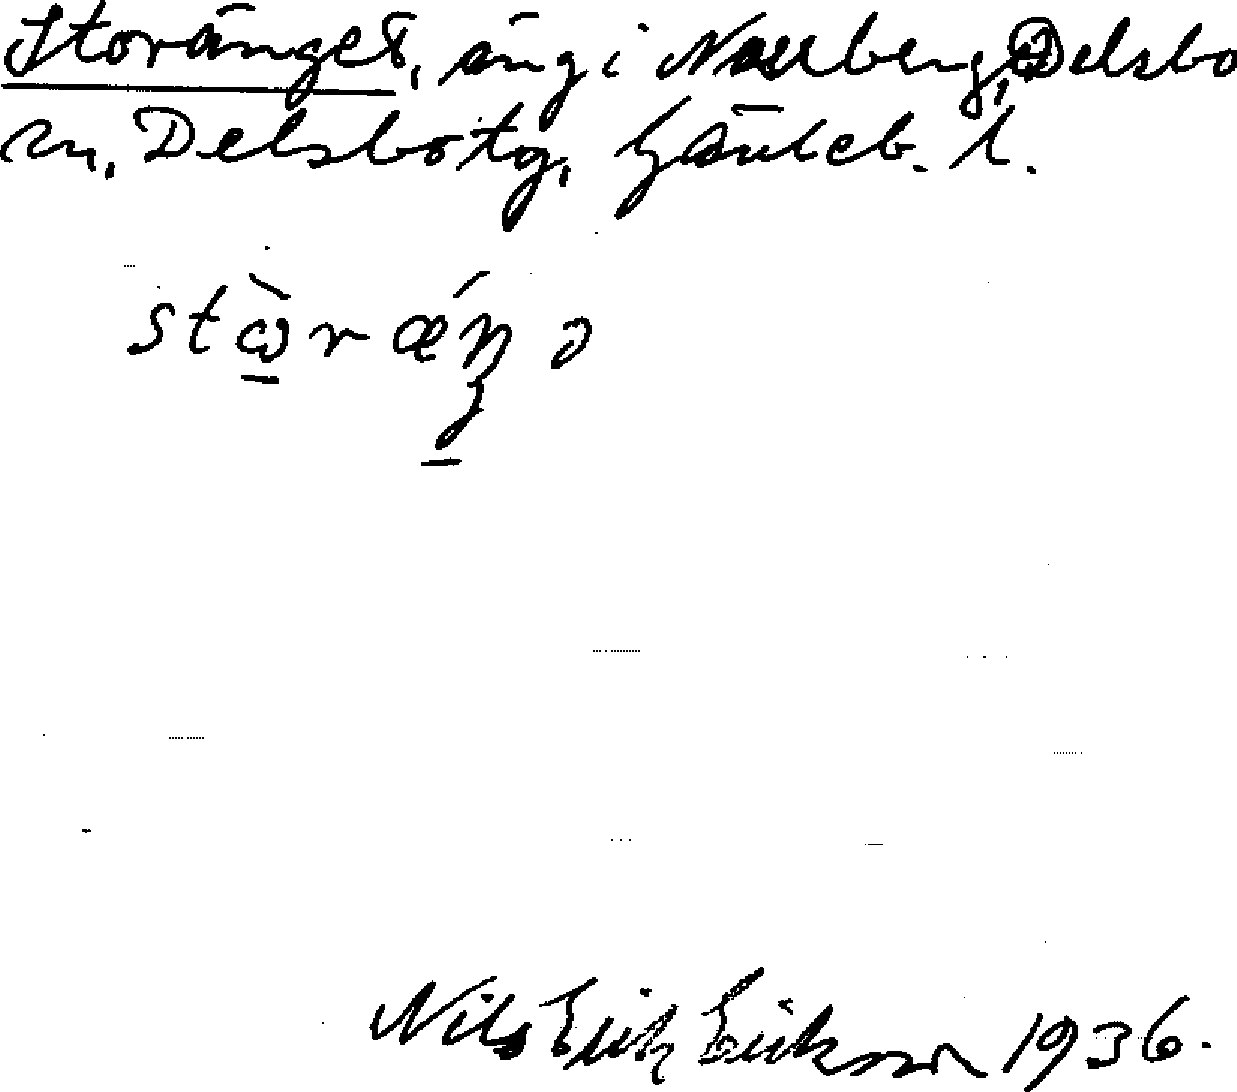 Storänget, äng i Norrberg, Delsbo
sn, Delsbo tg, Gävleb. l.
stɷ̀rǽŋə
Nils Erik Eriksson 1936.